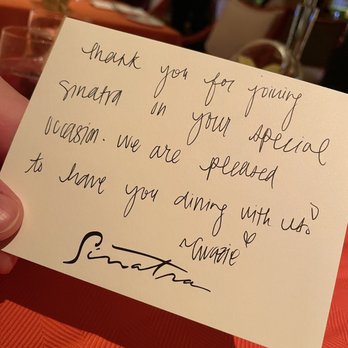 Thank you for joining
Sinatra on your special
occasion. We are pleased
to have you dining with us!
~Grazie
Sinatra